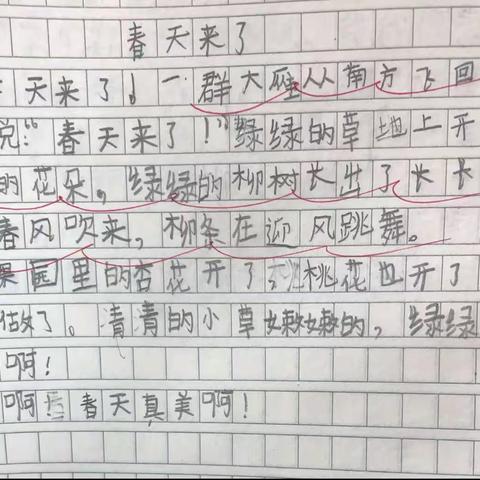 春天来了
天来了!一群大雁从南方飞回
说:“春天来了!”绿绿的草地上开
的花朵,绿绿的柳树长出了长长
春风吹来,柳条在迎风跳舞。
果园里的杏花开了,桃花也开了
了。青青的小草嫩嫩的,绿绿
啊!
啊 春天真美啊!